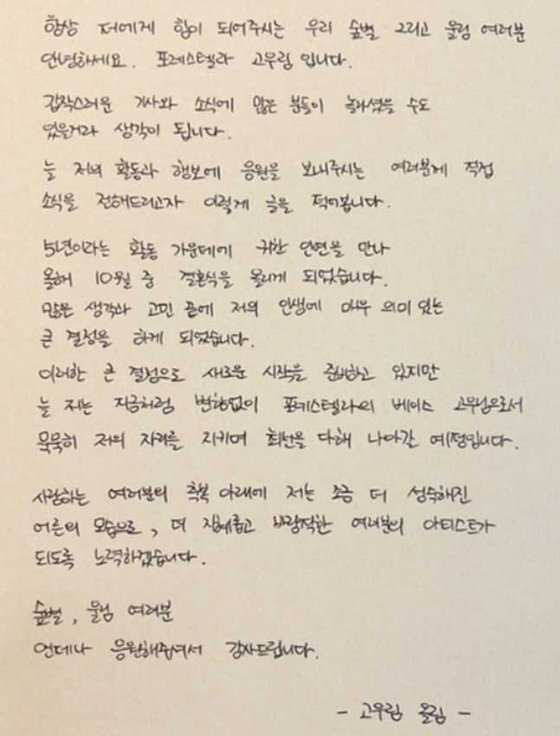 항상 저에게 힘이 되어주시는 우리 숲별 그리고 울림 여러분
안녕하세요. 포레스텔라 고우림 입니다.
갑작스러운 기사와 소식에 많은 분들이 놀라셨을 수도
있을거라 생각이 됩니다.
늘 저의 활동과 행보에 응원을 보내주시는 여러분께 직접
소식을 전해드리고자 이렇게 글을 적어봅니다.
5년이라는 활동 가운데에 귀한 인연을 만나
올해 10월 중 결혼식을 올리게 되었습니다.
많은 생각과 고민 끝에 저의 인생에 매우 의미 있는
큰 결정을 하게 되었습니다.
이러한 큰 결정으로 새로운 시작을 준비하고 있지만
늘 저는 지금처럼 변함없이 포레스텔라의 베이스 고우림으로서
묵묵히 저의 자리를 지키며 최선을 다해 나아갈 예정입니다.
사랑하는 여러분의 축복 아래에 저는 조금 더 성숙해진
어른의 모습으로, 더 지혜롭고 바람직한 여러분의 아티스트가
되도록 노력하겠습니다.
숲별, 울림 여러분
언제나 응원해주셔서 감사드립니다.
- 고우림 올림 -